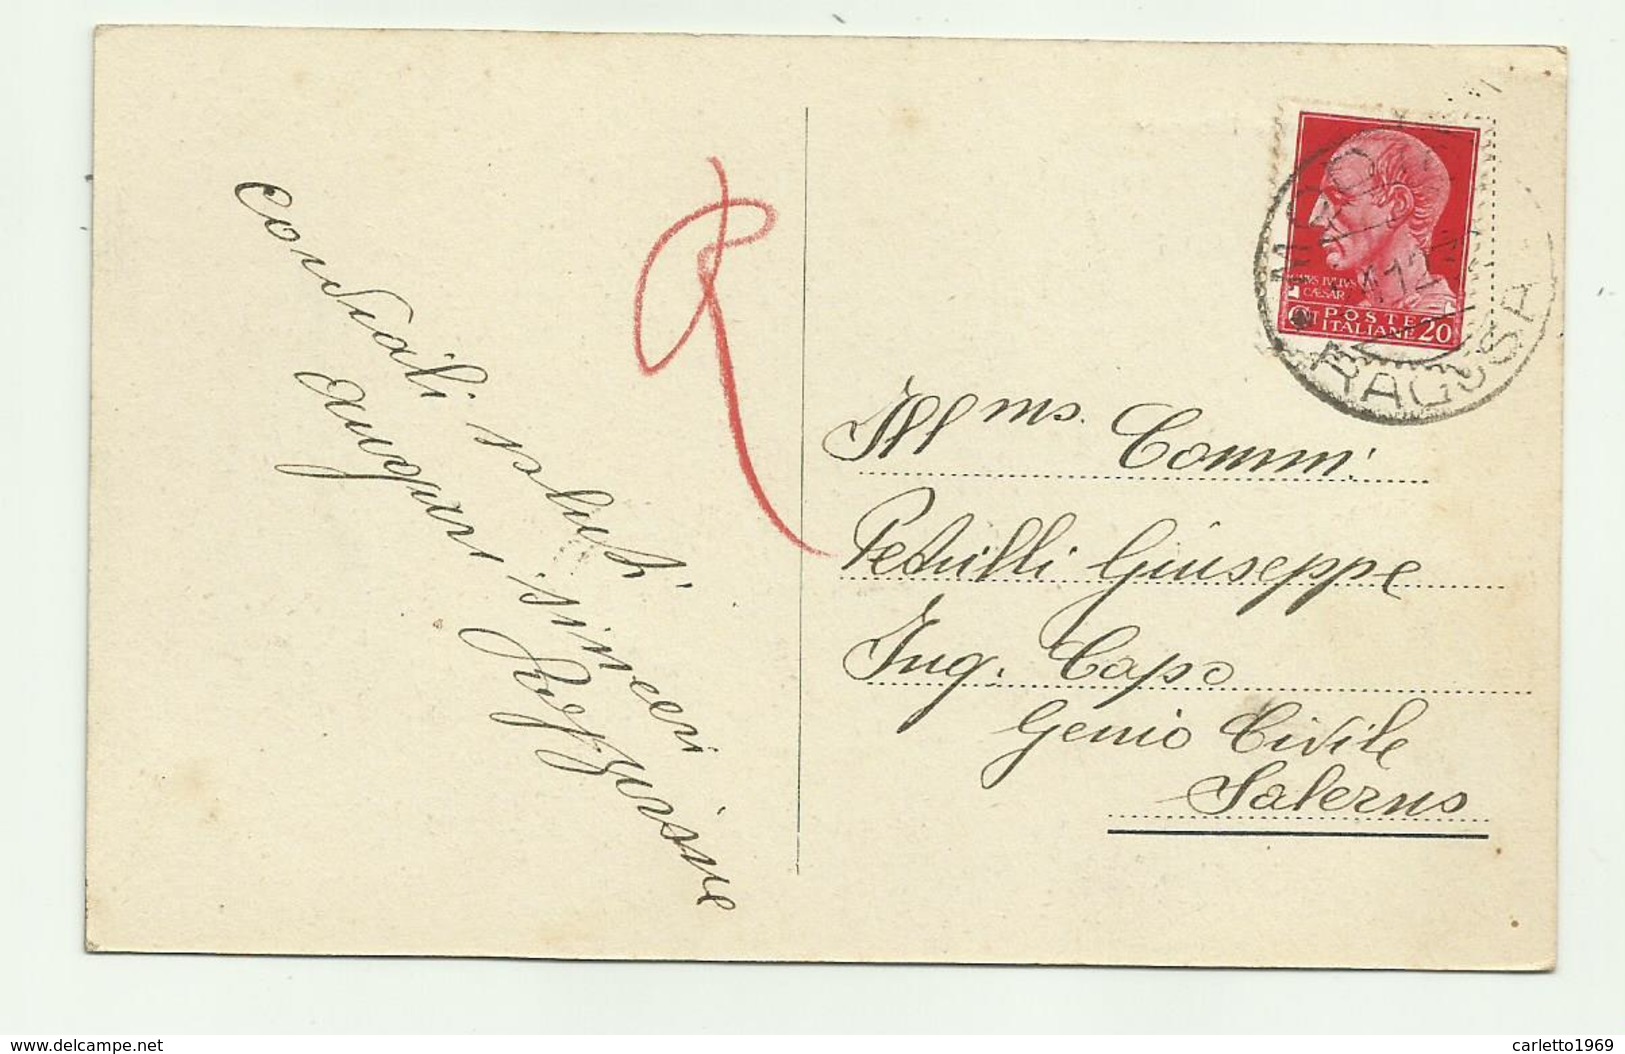 cordiali saluti
auguri sinceri
Illmo. Comm.
Petrilli Giuseppe
Ing. Capo
Genio Civile
Salerno
IVLIVS
CAESAR
POSTE
ITALIANE 20
RAGUSA
www.delcampe.net
carletto1969